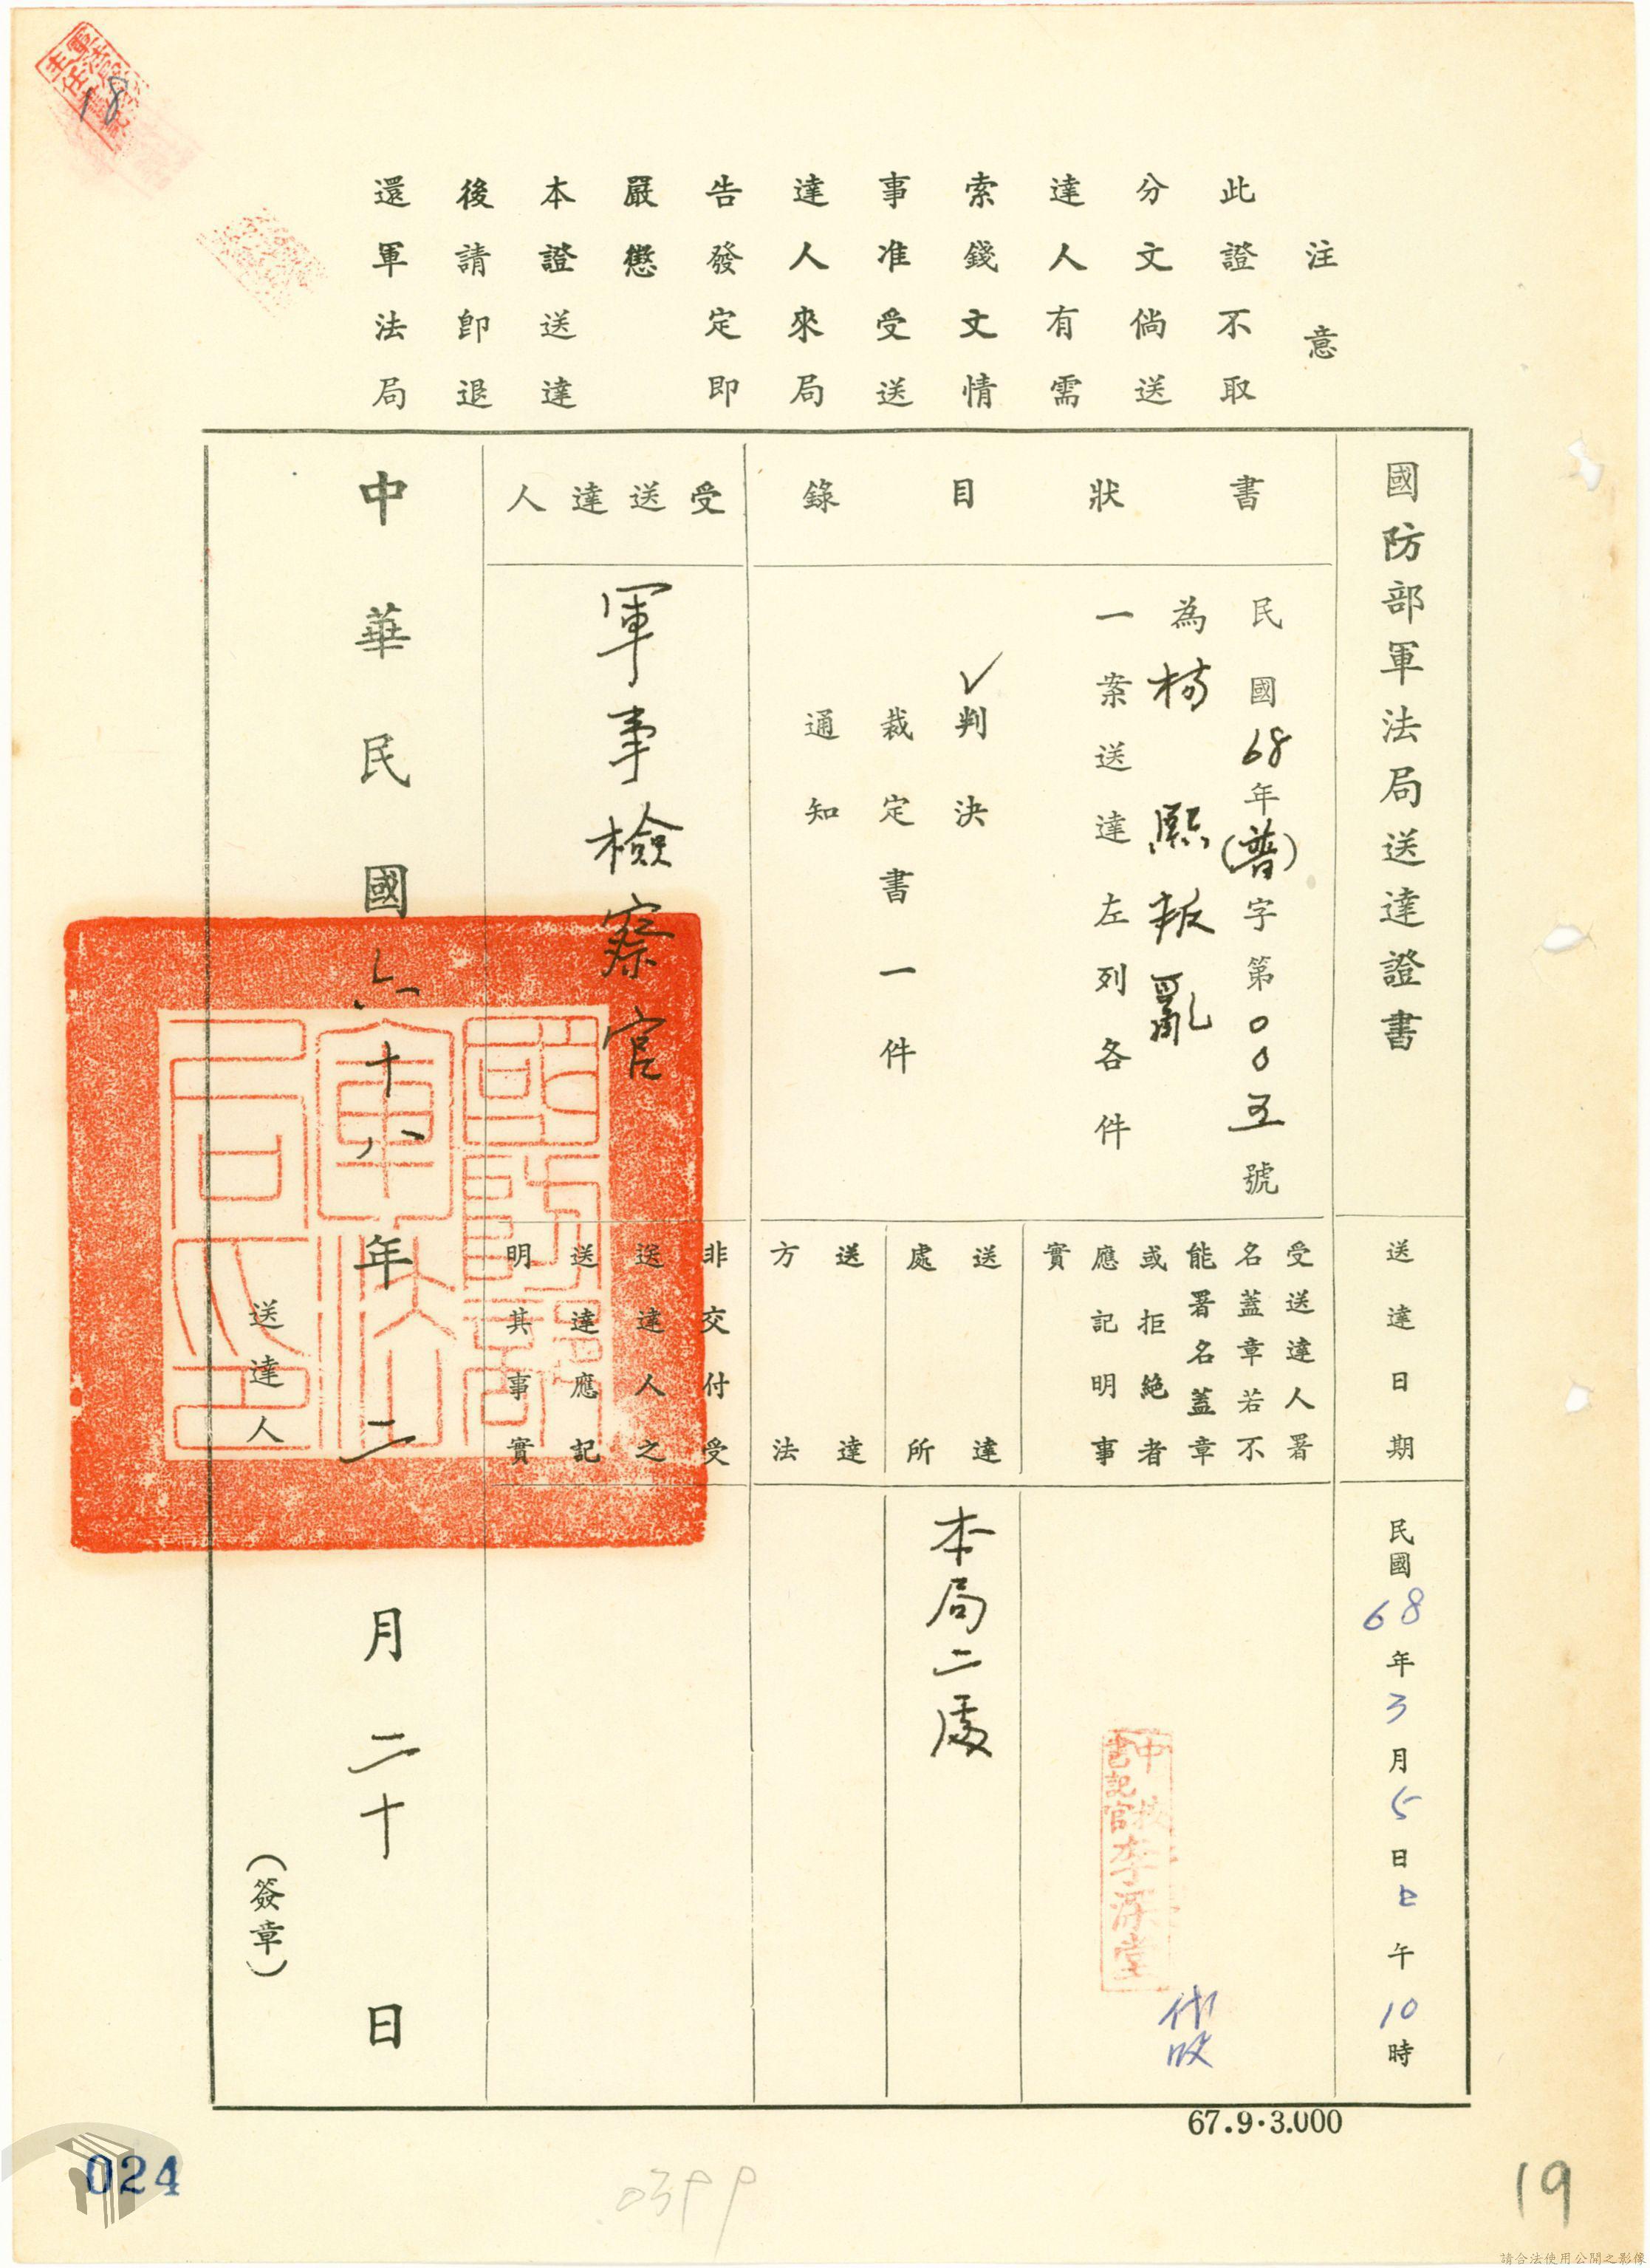 18
注意
此證不取
分文倘送
達人有需
索錢文情
事准受送
達人來局
告發定即
嚴懲
本證送達
後請即退
還軍法局
國防部軍法局送達證書
送達日期
民國68年3月5日上午10時
書狀目錄
民國68年(普)字第00五號
為楊熙叛亂
一案送達左列各件
✓判決
裁定書一件
通知
受送達人署
名蓋章若不
能署名蓋章
或拒絕者
應記明事
實
中校
書記官李深堂
代收
送達
處所
本局二處
送達
方法
受送達人
軍事檢察官
非交付受
送達人之
送達應記
明其事實
中華民國六十八年二月二十日
國防部軍法局之印
送達人
(簽章)
67.9.3.000
024
19
請合法使用公開之影像